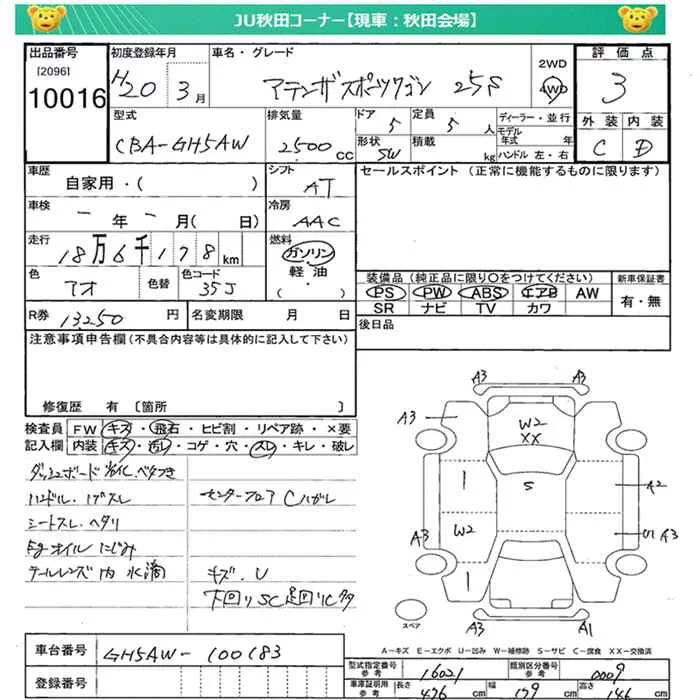 JU秋田コーナー【現車：秋田会場】
出品番号
[2096]
10016
初度登録年月
H20 3月
車名・グレード
アテンザスポーツワゴン 25S
2WD
4WD
評価点
3
外装 内装
C D
型式
CBA-GH5AW
排気量
2500cc
ドア
5
定員
5人
形状
SW
積載
kg
ディーラー・並行
モデル年式 年
ハンドル 左・右
車歴
自家用・( )
シフト
AT
セールスポイント（正常に機能するものに限ります）
車検
ー年ー月( 日)
冷房
AAC
走行
18万6千178km
燃料
ガソリン
軽油
( )
色
アオ
色替
色コード
35J
装備品（純正品に限り○をつけてください）
PS PW ABS エアB AW
SR ナビ TV カワ
新車保証書
有・無
R券 13,250円
名変期限 月 日
後日品
注意事項申告欄（不具合内容等は具体的に記入して下さい）
修復歴 有 〔箇所 〕
検査員記入欄
FW キズ・飛石・ヒビ割・リペア跡・×要
内装 キズ・汚レ・コゲ・穴・スレ・キレ・破レ
ダッシュボード劣化、ベタつき
ハンドル・
シートスレ・ヘタリ
センターフロア Cハガレ
Egオイルにじみ
テールレンズ内 水滴
キズ．U
下回りSC 足回りC
A3 A3
A3
W2
XX
S
A2
W2
U1 A3
A3
A3 A1
スペア
A－キズ E－エクボ U－凹み W－補修跡 S－サビ C－腐食 XX－交換済
車台番号
GH5AW-100183
登録番号
型式指定番号
参考
16021
類別区分番号
参考
0009
車庫証明用
参考
長さ
476
幅
179
高さ
146
cm